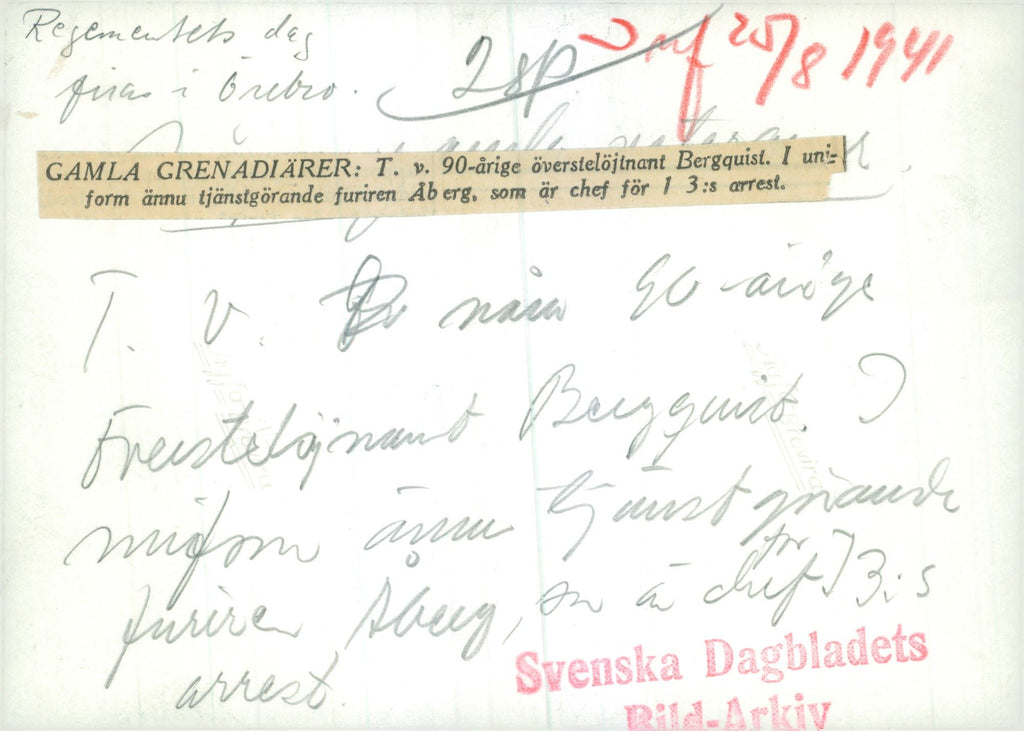 Regementets dag
firas i Örebro.
2 sp
Inf 25/8 1941
GAMLA GRENADIÄRER: T. v. 90-årige överstelöjtnant Bergquist. I uni-
form ännu tjänstgörande furiren Åberg, som är chef för I 3:s arrest.
T. v. 90-årige
överstelöjtnant Bergquist. I
uniform ännu tjänstgörande
furiren Åberg, som är chef för I 3:s
arrest.
Svenska Dagbladets
Bild-Arkiv